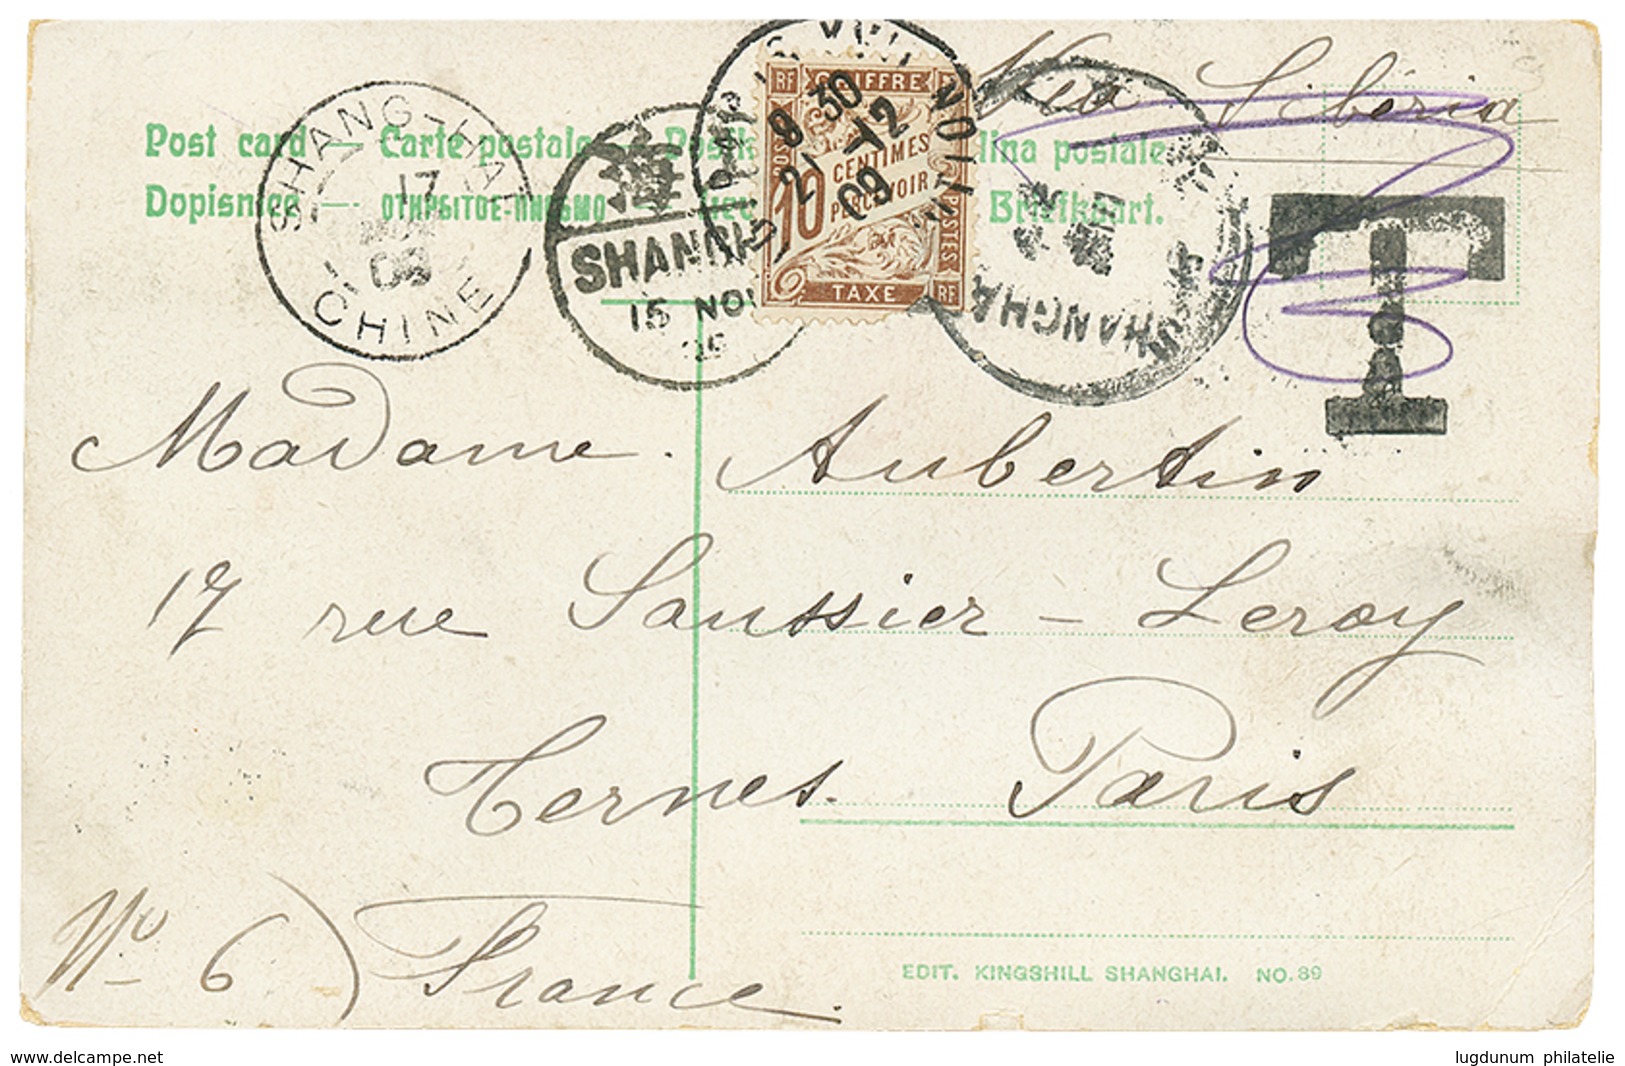 Via Sibérie
Post card — Carte postale —
Dopisnice — ОТКРЫТОЕ-ПИСЬМО
Briefkaart.
SHANG-HAI
17
09
CHINE
SHANGH
15 NOV
RF CHIFFRE
10 CENTIMES
PERCEVOIR
TAXE RF
8 30
21 -12
09
SHANGHA
T
Madame Aubertin
17 rue Saussier-Leroy
Ternes. Paris
No 6) France.
EDIT. KINGSHILL SHANGHAI. NO. 89
www.delcampe.net
lugdunum philatelie